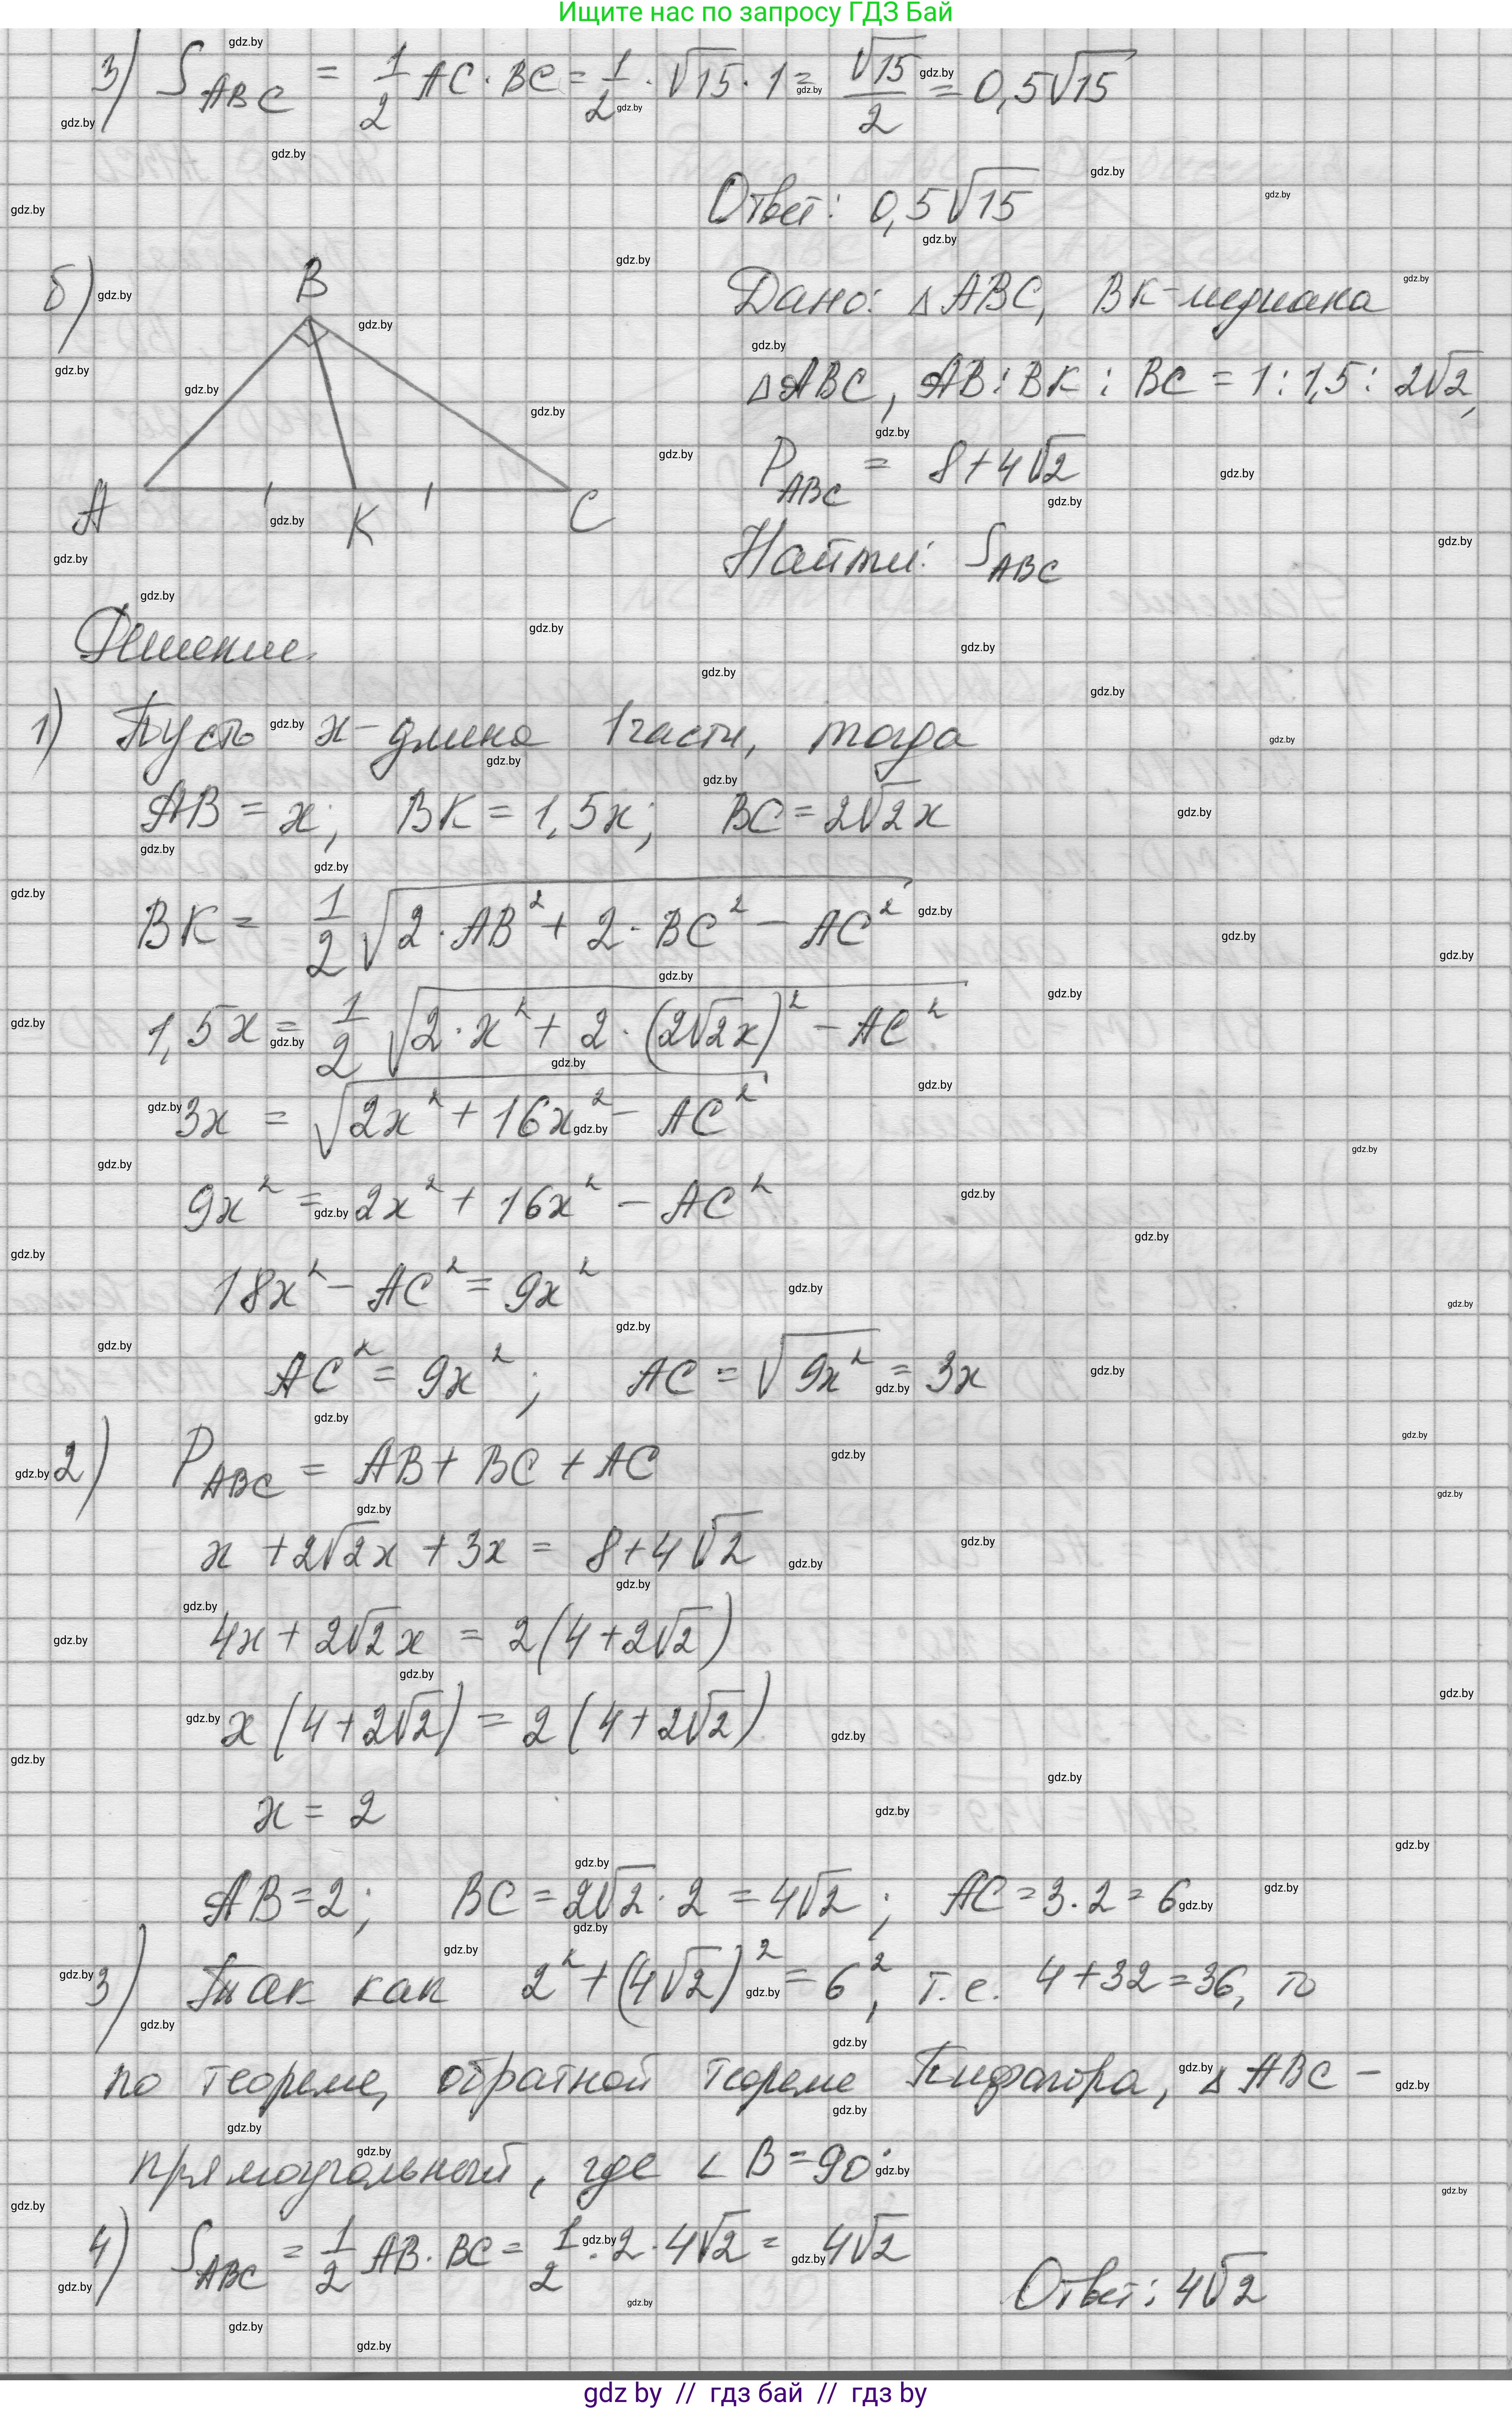 Ищите нас по запросу ГДЗ Бай
3) S_ABC = 1/2 AC · BC = 1/2 · √15 · 1 = √15/2 = 0,5√15
Ответ: 0,5√15
б)
B
A
K
C
Дано: △ABC, BK-медиана
△ABC, AB : BK : BC = 1 : 1,5 : 2√2,
P_ABC = 8+4√2
Найти: S_ABC
Решение.
1) Пусть x - длина 1 части, тогда
AB = x; BK = 1,5x; BC = 2√2x
BK = 1/2 √(2·AB² + 2·BC² - AC²)
1,5x = 1/2 √(2·x² + 2·(2√2x)² - AC²)
3x = √(2x² + 16x² - AC²)
9x² = 2x² + 16x² - AC²
18x² - AC² = 9x²
AC² = 9x²; AC = √(9x²) = 3x
2) P_ABC = AB + BC + AC
x + 2√2x + 3x = 8+4√2
4x + 2√2x = 2(4+2√2)
x(4+2√2) = 2(4+2√2)
x = 2
AB = 2; BC = 2√2 · 2 = 4√2; AC = 3·2 = 6
3) Так как 2² + (4√2)² = 6², т.е. 4+32=36, то
по теореме, обратной теореме Пифагора, △ABC -
прямоугольный, где ∠B = 90°.
4) S_ABC = 1/2 AB · BC = 1/2 · 2 · 4√2 = 4√2
Ответ: 4√2
gdz by // гдз бай // гдз by